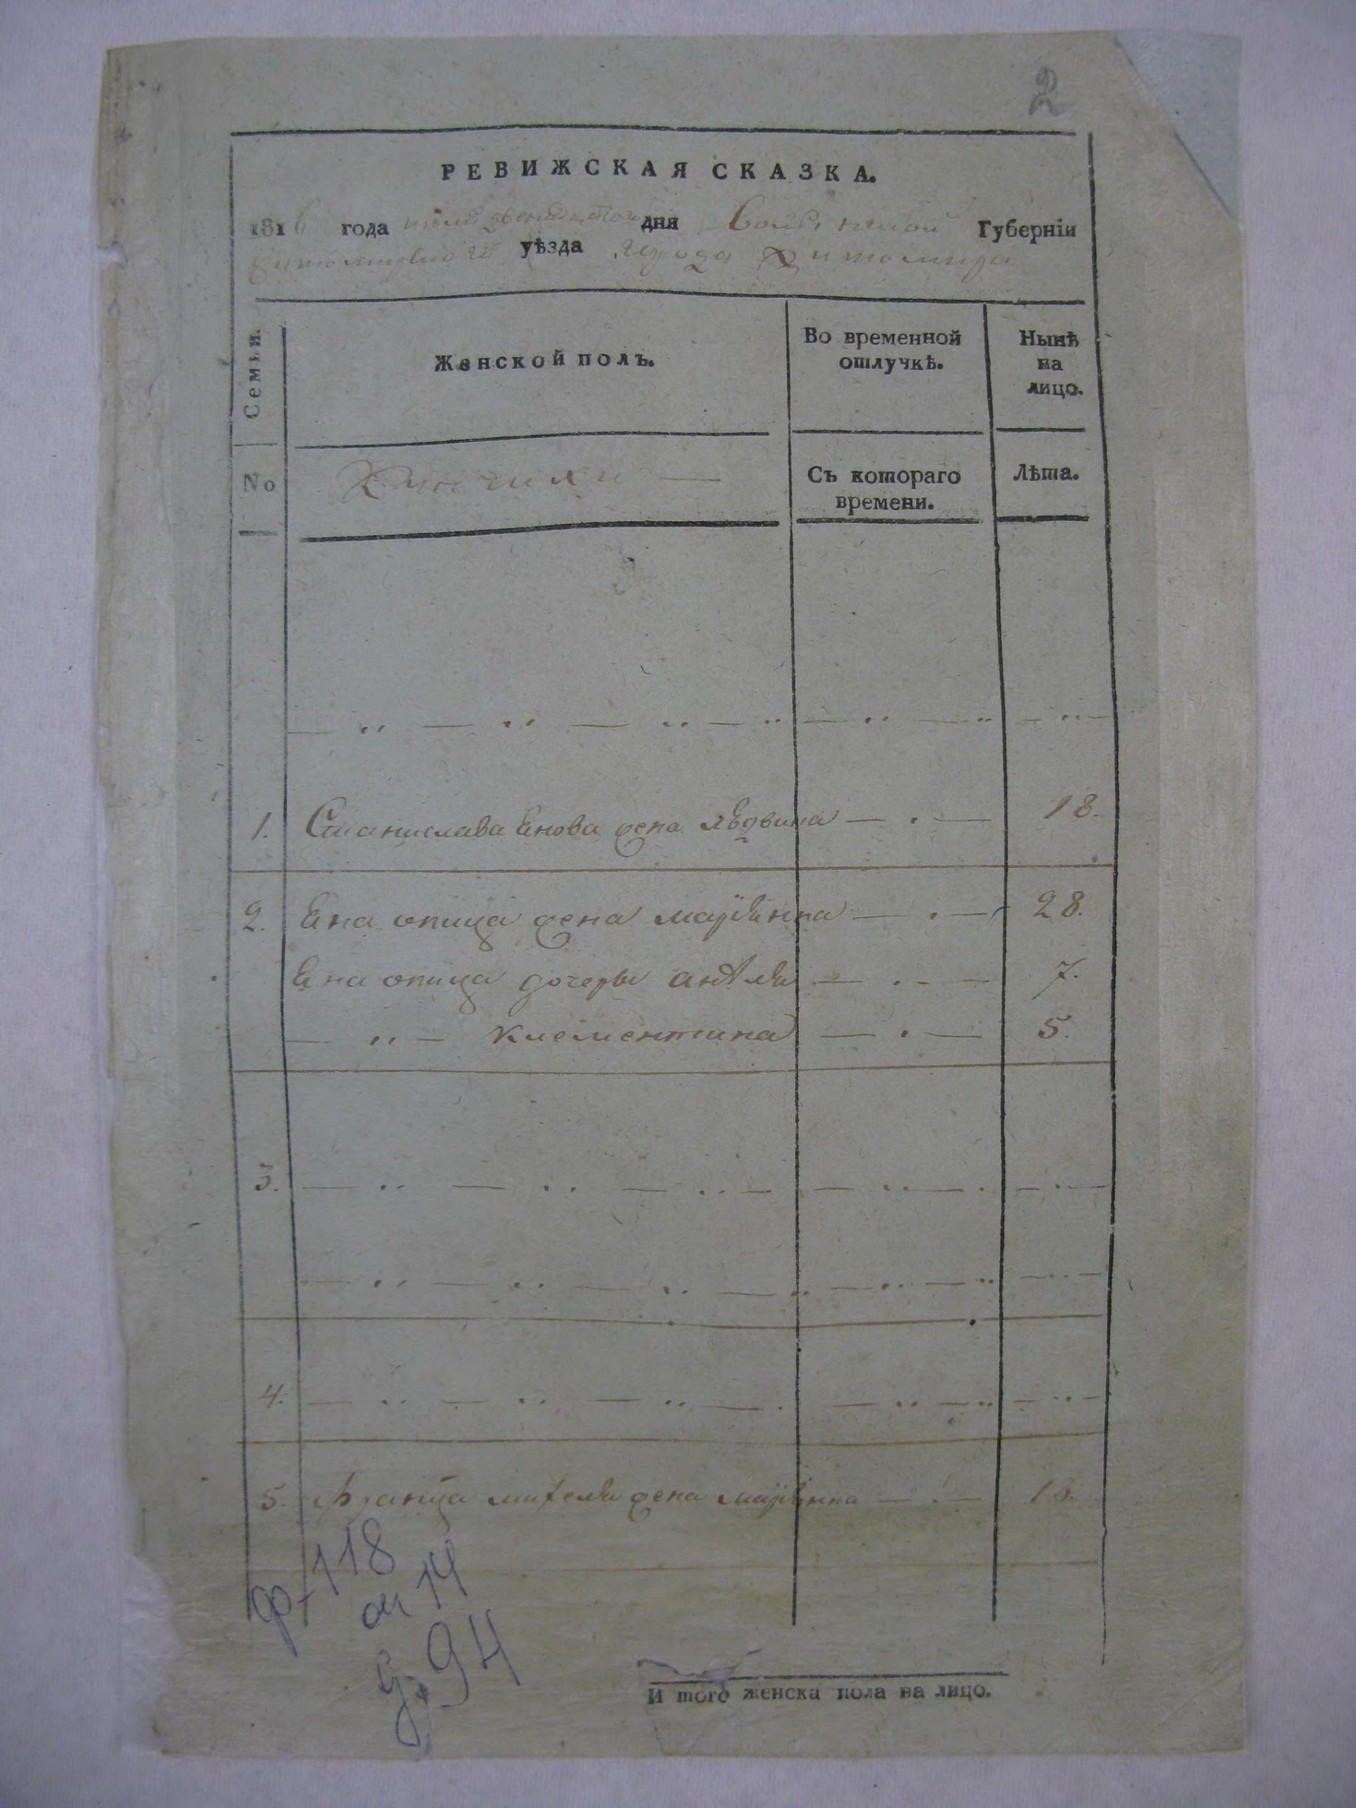 2
РЕВИЖСКАЯ СКАЗКА.
1816 года июля дня Волынской Губерніи
уѣзда города Житомира
Семьи.
Женской полъ.
Во временной отлучкѣ.
Нынѣ на лицо.
No
Съ котораго времени.
Лѣта.
1. Станислава Янова жена Ядвига — . — 18.
2. Яна жена Марыянна — . — 28.
Яна дочеры — . . — 7.
— „ — Клементина — . — 5.
3.
4.
5. Франца жена Марыянна — . —
ф-118
оп 14
д. 94
И того женска пола на лицо.